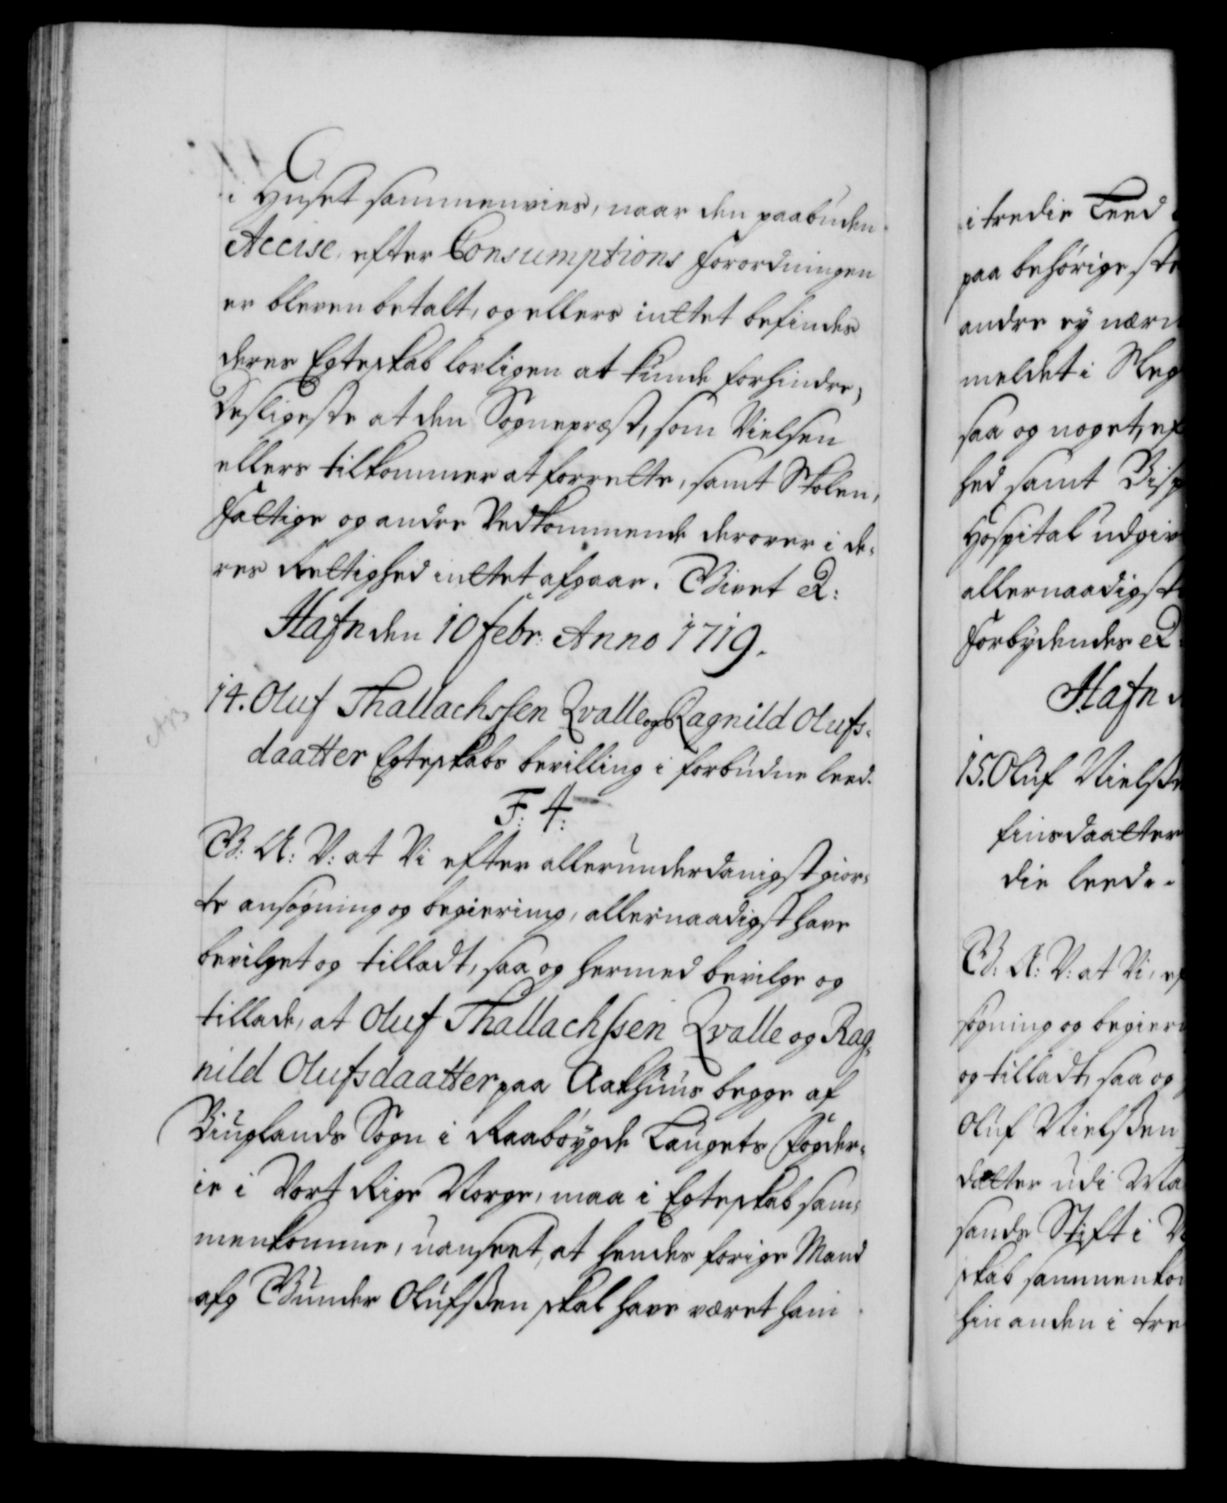 i Huset sammenvies, naar den paabuden
Accise, efter Consumptions Forordningen
er bleven betalt, og ellers intet befindes
deres Egteskab lovligen at kunde forhindre,
Desligeste at den Sognepræst, som Vielsen
ellers tilkommer at forrette, samt Skolen,
Fattige og andre Vedkommende derover i de-
res Rettighed intet afgaar. Givet &:
Hafn den 10 febr: Anno 1719.
14. Oluf Thallachssen Qvalle og Ragnild Olufs-
daatter Egteskabs bevilling i forbudne leed.
F: 4:
G: A: V: at Vi efter allerunderdanigst gior-
te ansøgning og begiering, allernaadigst have
bevilget og tilladt, saa og hermed bevilge og
tillade, at Oluf Thallachssen Qvalle og Rag-
nild Olufsdaatter paa Aakhuus begge af
Biuglands Sogn i Raabøygde Laugets Fogder-
ie i Vort Rige Norge, maa i Egteskab sam-
menkomme, uanseet, at hendes forige Mand
afg Gunder Olufssen skal have været ham
i tredie Leed
paa behørige ste
andre ey nærm
meldet i Sleg
saa og noget, ef
hed samt Bisp
Hospital udgiv
allernaadigst
Forbydendes &
Hafn d
15. Oluf Nielsse
finsdaatter
die leed.
G: A: V: at Vi, ef
søgning og begieri
og tilladt, saa og
Oluf Nielssen
datter udi
sands Stift i
skab sammenkom
hinanden i tre